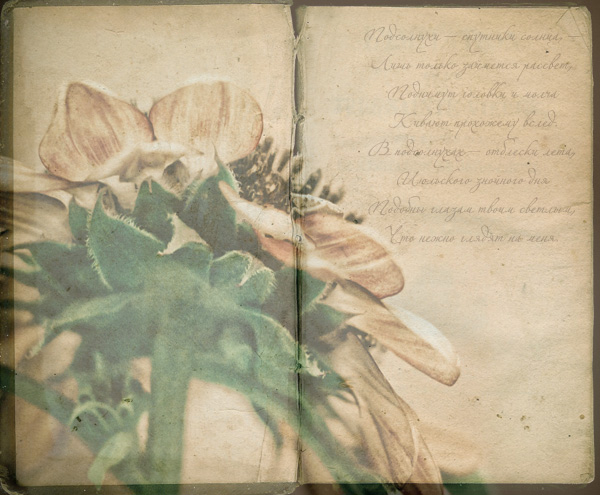 Подсолнухи — спутники солнца. —
Лишь только зажжется рассвет,
Поднимут головки и молча
Кивают прохожему вслед.
В подсолнухах — отблески лета,
Июльского знойного дня
Подобны глазам твоим светлым,
Что нежно глядят на меня.